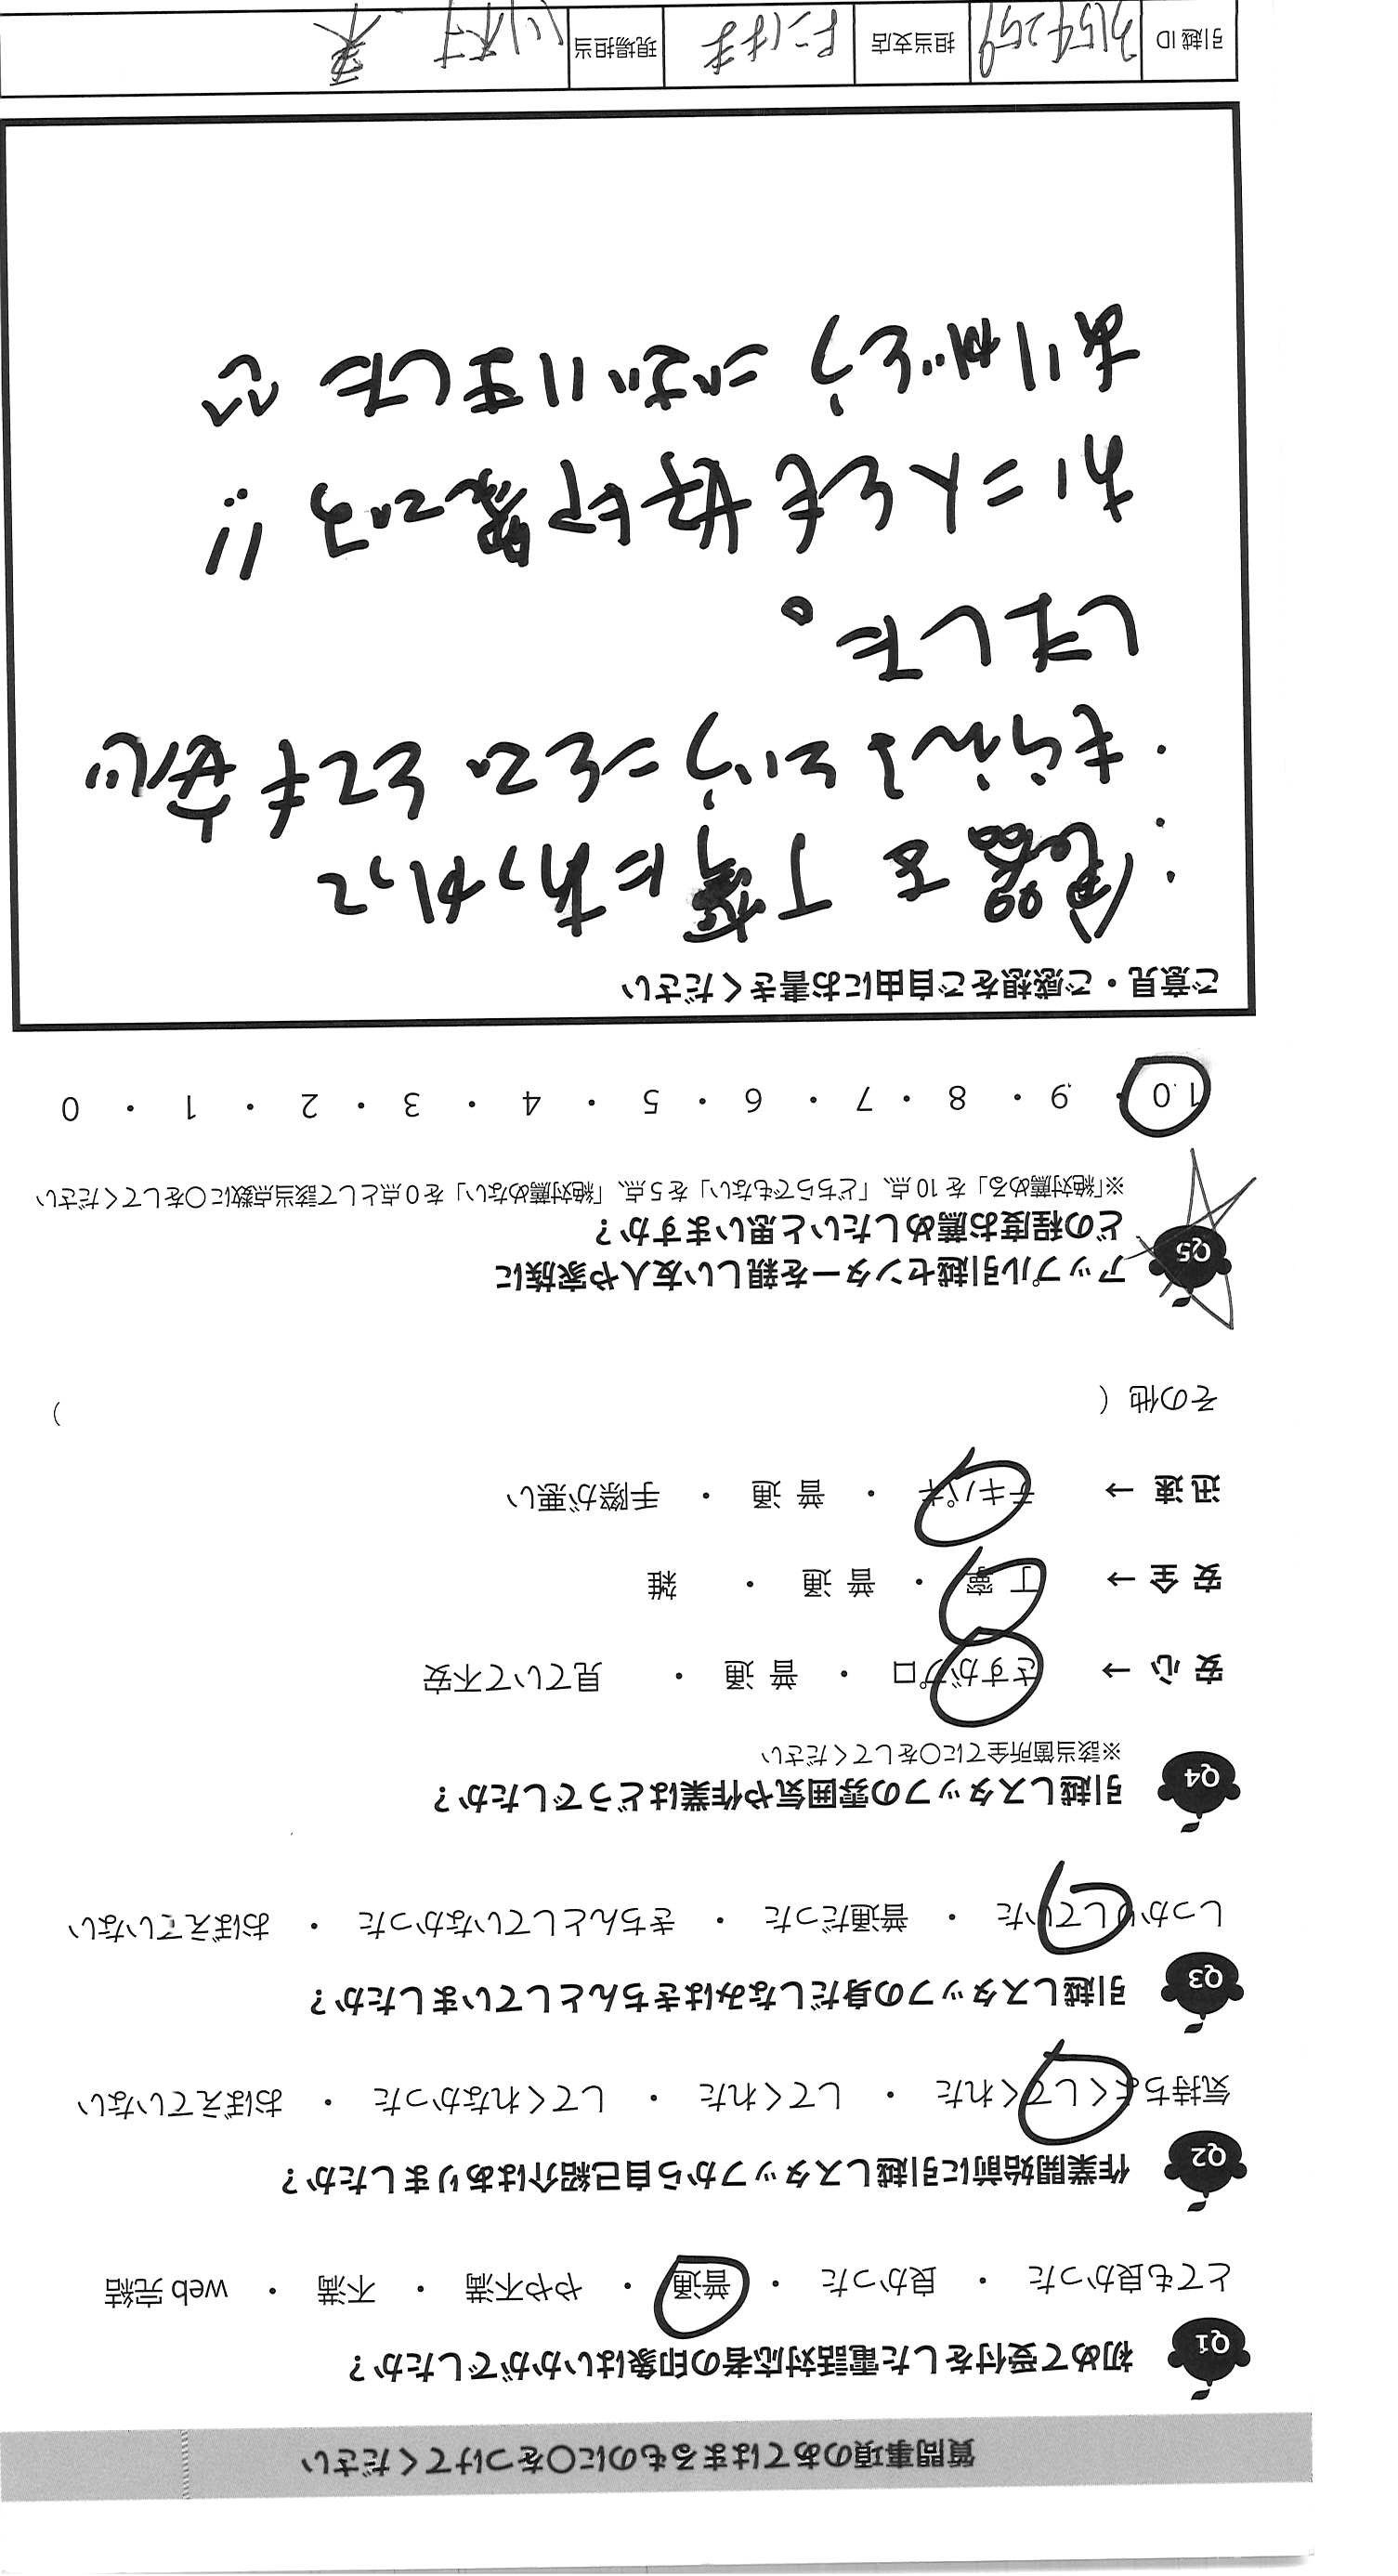 質問事項のあてはまるものに○をつけてください
Q1 初めて受付をした電話対応者の印象はいかがでしたか？
とても良かった ・ 良かった ・ 普通 ・ やや不満 ・ 不満 ・ web 完結
Q2 作業開始前に引越しスタッフから自己紹介はありましたか？
気持ちよくしてくれた ・ してくれた ・ してくれなかった ・ おぼえていない
Q3 引越しスタッフの身だしなみはきちんとしていましたか？
しっかりしていた ・ 普通だった ・ きちんとしていなかった ・ おぼえていない
Q4 引越しスタッフの雰囲気や作業はどうでしたか？
※該当箇所全てに○をしてください
安 心 → さすがプロ ・ 普 通 ・ 見ていて不安
安 全 → 丁 寧 ・ 普 通 ・ 雑
迅 速 → テキパキ ・ 普 通 ・ 手際が悪い
その他（ ）
Q5 アップル引越センターを親しい友人や家族に
どの程度お薦めしたいと思いますか？
※「絶対薦める」を 10 点、「どちらでもない」を 5 点、「絶対薦めない」を 0 点として該当点数に○をしてください
10 ・ 9 ・ 8 ・ 7 ・ 6 ・ 5 ・ 4 ・ 3 ・ 2 ・ 1 ・ 0
ご意見・ご感想をご自由にお書きください
食器を丁寧にあつかって
もらえるということでとても安心
しました。
お二人とも好印象です!!
ありがとうございました
引越 ID 3154259 担当支店 よこはま 現場担当